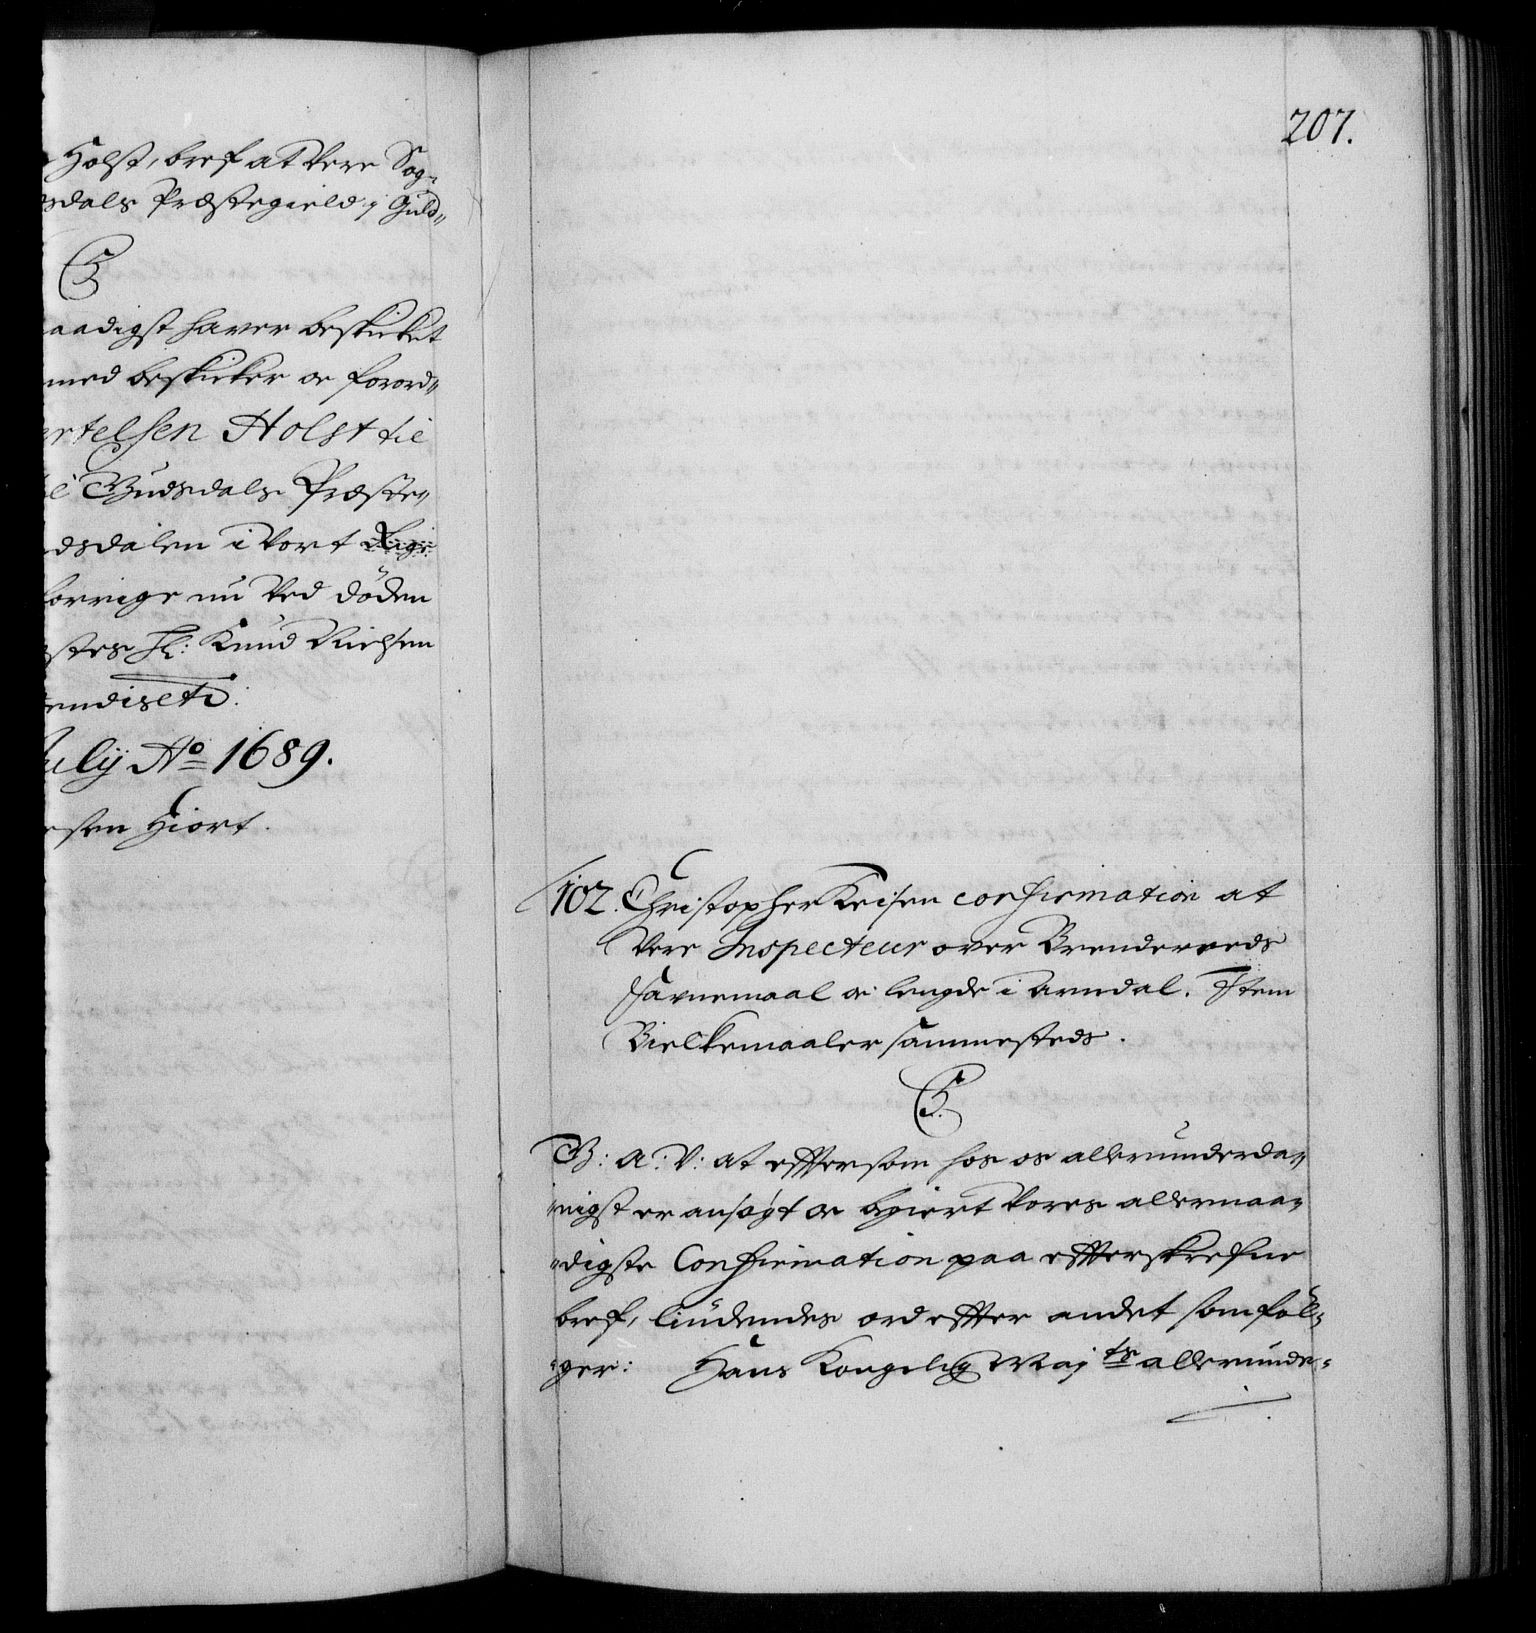 Holst, bref at Vere Sog-
sdals Præstegield i Guld-
C5
aadigst haver beskicket
med beskicker oc forord-
ertelsen Holst til
Budsdals Præste-
dsdalen i Vort Rige
forrige nu Ved döden
Hr: Knud Nielsen
July Ao 1689.
Hiort.
207.
102. Christopher Keisen confirmation at
Vere Inspecteur over Brendeveds
favnemaal oc lengde i Arndal. Item
Bielkemaaler sammesteds.
C5.
G: A: V: at effter som hos os allerunderda-
nigst er ansøgt oc begiert Vores allernaa-
digste Confirmation paa effterskrefne
bref, liudendes ord effter andet som föl-
ger: Hans Kongelig Majts allerunde-